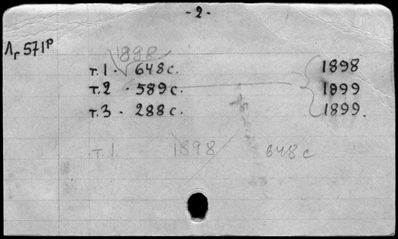 - 2 -
Лг 571р
1898
т. 1 - 648 с. 1898
т. 2 - 589 с. 1899
т. 3 - 288 с. 1899.
т. 1. 1898 648 с